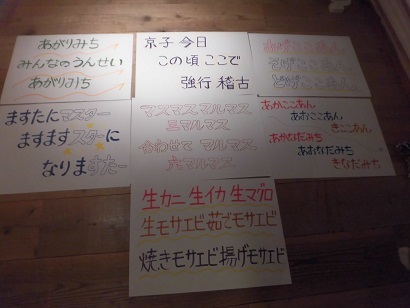 あがりみち
みんなのうんせい
あがりみち
京子 今日
この頃 ここで
強行 稽古
あげここあん
どげここあん
ますたにマスター
ますますスターに
なりますたー
マスマスマルマス
三マルマス
合わせて マルマス
六マルマス
あかここあん
あおここあん
きここあん
あかなだみち
あおなだみち
きなだみち
生カニ 生イカ 生マグロ
生モサエビ茹でモサエビ
焼きモサエビ揚げモサエビ